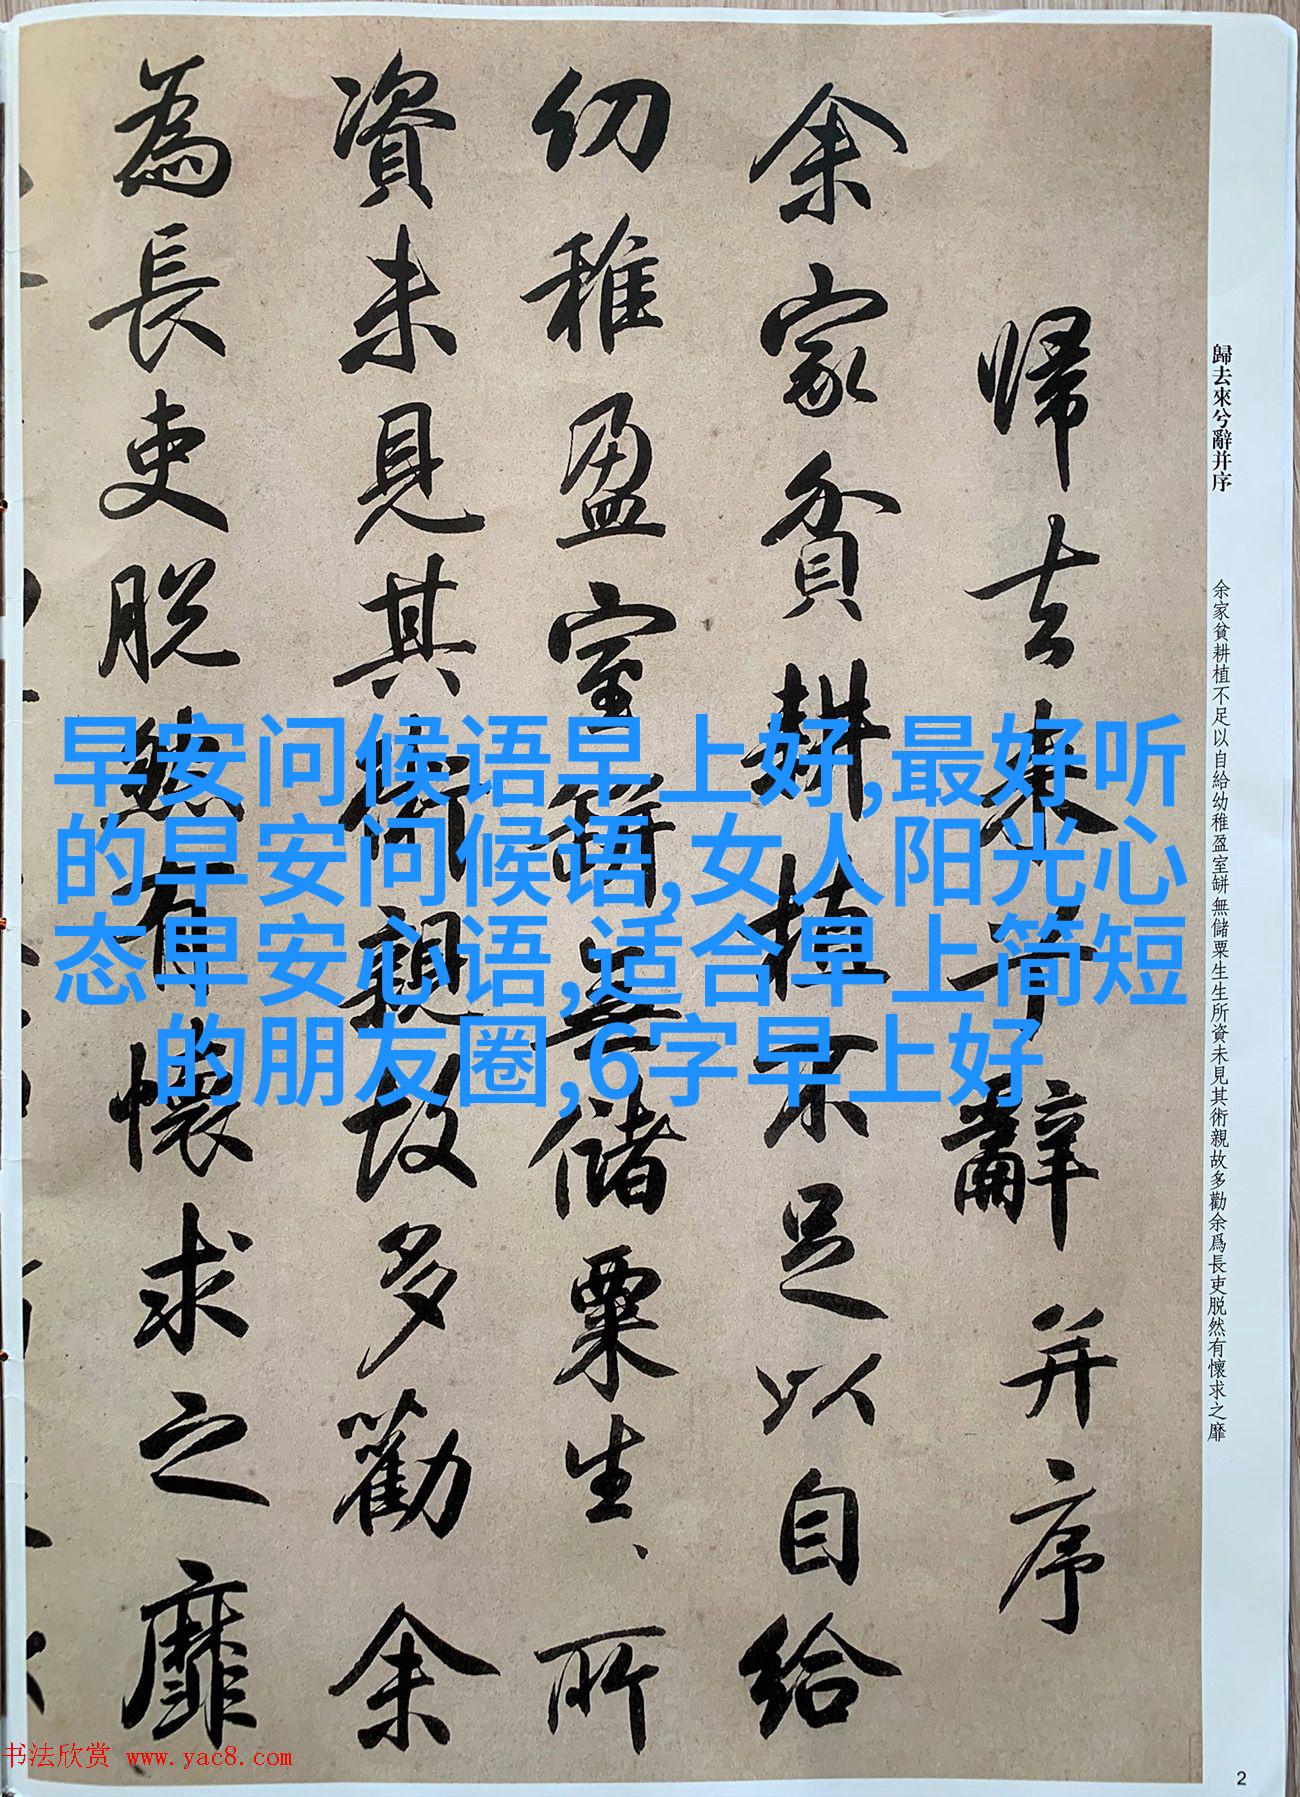 歸去來兮辭并序
余家貧耕植不足以自給幼稚盈室缾無儲粟生生所資未見其術親故多勸余爲長吏脱然有懷求之靡
歸去来兮辭并序
余家貧耕植不足以自給
幼稚盈室缾無儲粟生、所
資未見其術親故多勸余
為長吏脱然有懷求之靡
早安问候语早上好,最好听
的早安问候语,女人阳光心
态早安心语,适合早上简短
的朋友圈,6字早上好
书法欣赏 www.yac8.com
2